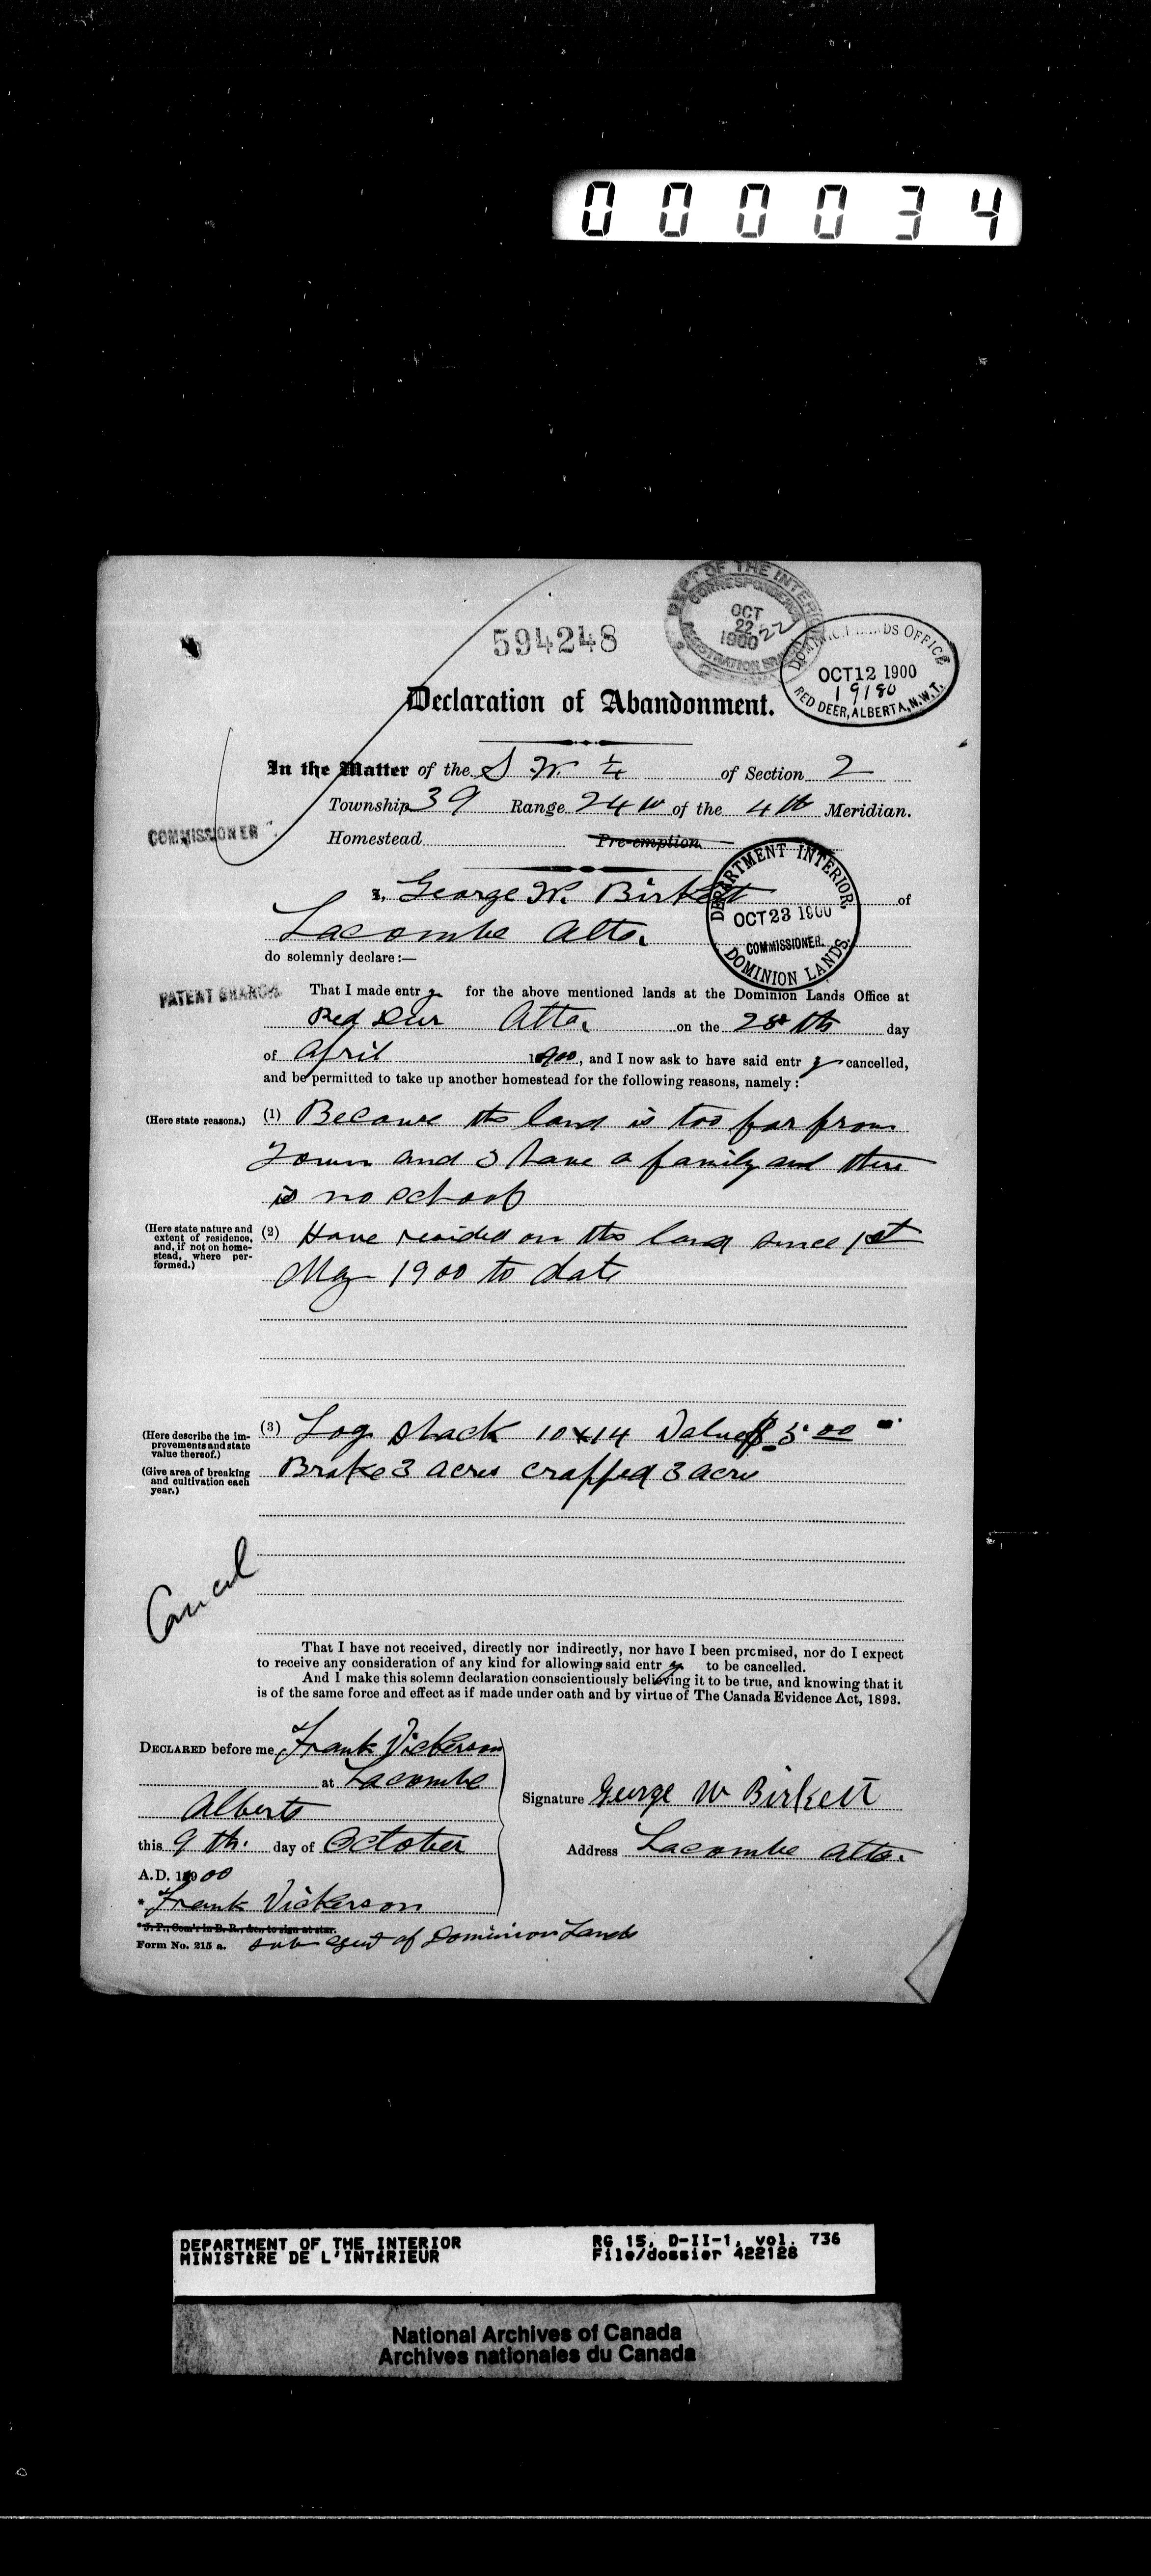 000034
594248
DEPT OF THE INTERIOR
CORRESPONDENCE
OCT
22
1900
REGISTRATION BRANCH
22
DOMINION LANDS OFFICE
OCT 12 1900
19180
RED DEER, ALBERTA, N.W.T.
Declaration of Abandonment.
In the Matter of the S W. 1/4 of Section 2
Township 39 Range 24 W of the 4th Meridian.
COMMISSIONER
Homestead Pre-emption
I, George W. Birkett of
Lacombe Alta.
DEPARTMENT INTERIOR.
OCT 23 1900
COMMISSIONER.
DOMINION LANDS.
do solemnly declare:—
PATENT BRANCH.
That I made entr y for the above mentioned lands at the Dominion Lands Office at
Red Deer Alta. on the 28th day
of April 1900, and I now ask to have said entr y cancelled,
and be permitted to take up another homestead for the following reasons, namely:
(Here state reasons.) (1) Because the land is too far from
Town and I have a family and there
is no school
(Here state nature and extent of residence, and, if not on homestead, where performed.) (2) Have resided on the land since 1st
May 1900 to date
(Here describe the improvements and state value thereof.) (3) Log shack 10x14 Value $5.00
(Give area of breaking and cultivation each year.) Broke 3 acres cropped 3 acres
Cancel
That I have not received, directly nor indirectly, nor have I been promised, nor do I expect
to receive any consideration of any kind for allowing said entr y to be cancelled.
And I make this solemn declaration conscientiously believing it to be true, and knowing that it
is of the same force and effect as if made under oath and by virtue of The Canada Evidence Act, 1893.
DECLARED before me Frank Vickerson
at Lacombe
Alberta
Signature George W Birkett
this 9th. day of October
Address Lacombe Alta.
A.D. 1900
* Frank Vickerson
* J. P., Com'r in B. R., &c., to sign at star.
Form No. 215 a. sub agent of Dominion Lands
DEPARTMENT OF THE INTERIOR RG 15, D-II-1, vol. 736
MINISTÈRE DE L'INTÉRIEUR File/dossier 422128
National Archives of Canada
Archives nationales du Canada